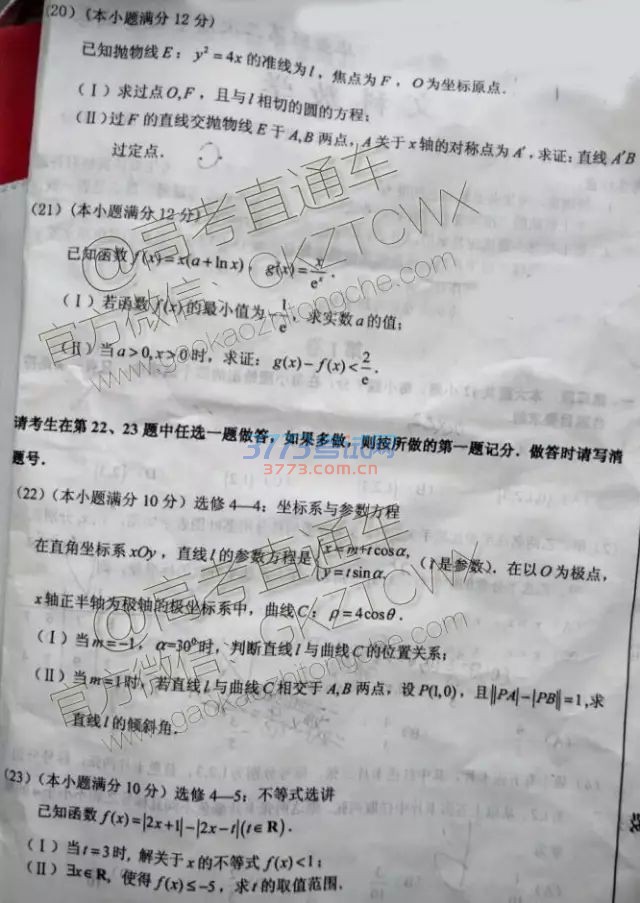 (20)(本小题满分12分)
已知抛物线E: y²=4x的准线为l,焦点为F,O为坐标原点.
(Ⅰ)求过点O,F,且与l相切的圆的方程;
(Ⅱ)过F的直线交抛物线E于A,B两点,A关于x轴的对称点为A′,求证:直线A′B
过定点.
(21)(本小题满分12分)
已知函数f(x)=x(a+lnx), g(x)=x/eˣ.
(Ⅰ)若函数f(x)的最小值为-1/e,求实数a的值;
(Ⅱ)当a>0,x>0时,求证:g(x)-f(x)<2/e.
请考生在第22、23题中任选一题做答,如果多做,则按所做的第一题记分.做答时请写清
题号.
(22)(本小题满分10分)选修4—4:坐标系与参数方程
在直角坐标系xOy,直线l的参数方程是{x=m+tcosα, y=tsinα, (t是参数).在以O为极点,
x轴正半轴为极轴的极坐标系中,曲线C: ρ=4cosθ.
(Ⅰ)当m=-1, α=30⁰时,判断直线l与曲线C的位置关系;
(Ⅱ)当m=1时,若直线l与曲线C相交于A,B两点,设P(1,0),且||PA|-|PB||=1,求
直线l的倾斜角.
(23)(本小题满分10分)选修4—5:不等式选讲
已知函数f(x)=|2x+1|-|2x-t|(t∈R).
(Ⅰ)当t=3时,解关于x的不等式f(x)<1;
(Ⅱ)∃x∈R,使得f(x)≤-5,求t的取值范围.
@高考直通车
官方微信:GKZTCWX
www.gaokaozhitongche.com
3773考试网
3773.com.cn
@高考直通车
官方微信:GKZTCWX
www.gaokaozhitongche.com